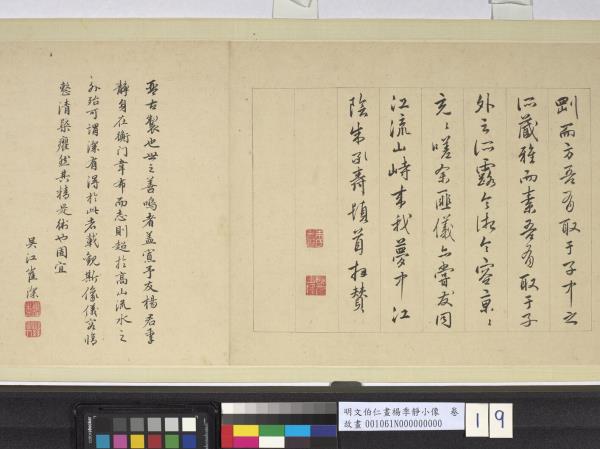 剛而方吾有取于子中之
所藏雅而素吾有取于子
外之所露令湫令容稟〻
充〻嗟余匪儀亦嘗友同
江流山峙來我夢中江
陰朱承壽頓首拜贊
琴古製也世之善鳴者蓋寡予友楊君季
靜身在衡門韋布而志則超於高山流水之
外殆可謂深有得於此者載觀斯像儀容脩
整清髯癯然其精是術也固宜
吳江崔深
明文伯仁畫楊季靜小像 卷
故畫 001061N000000000
19